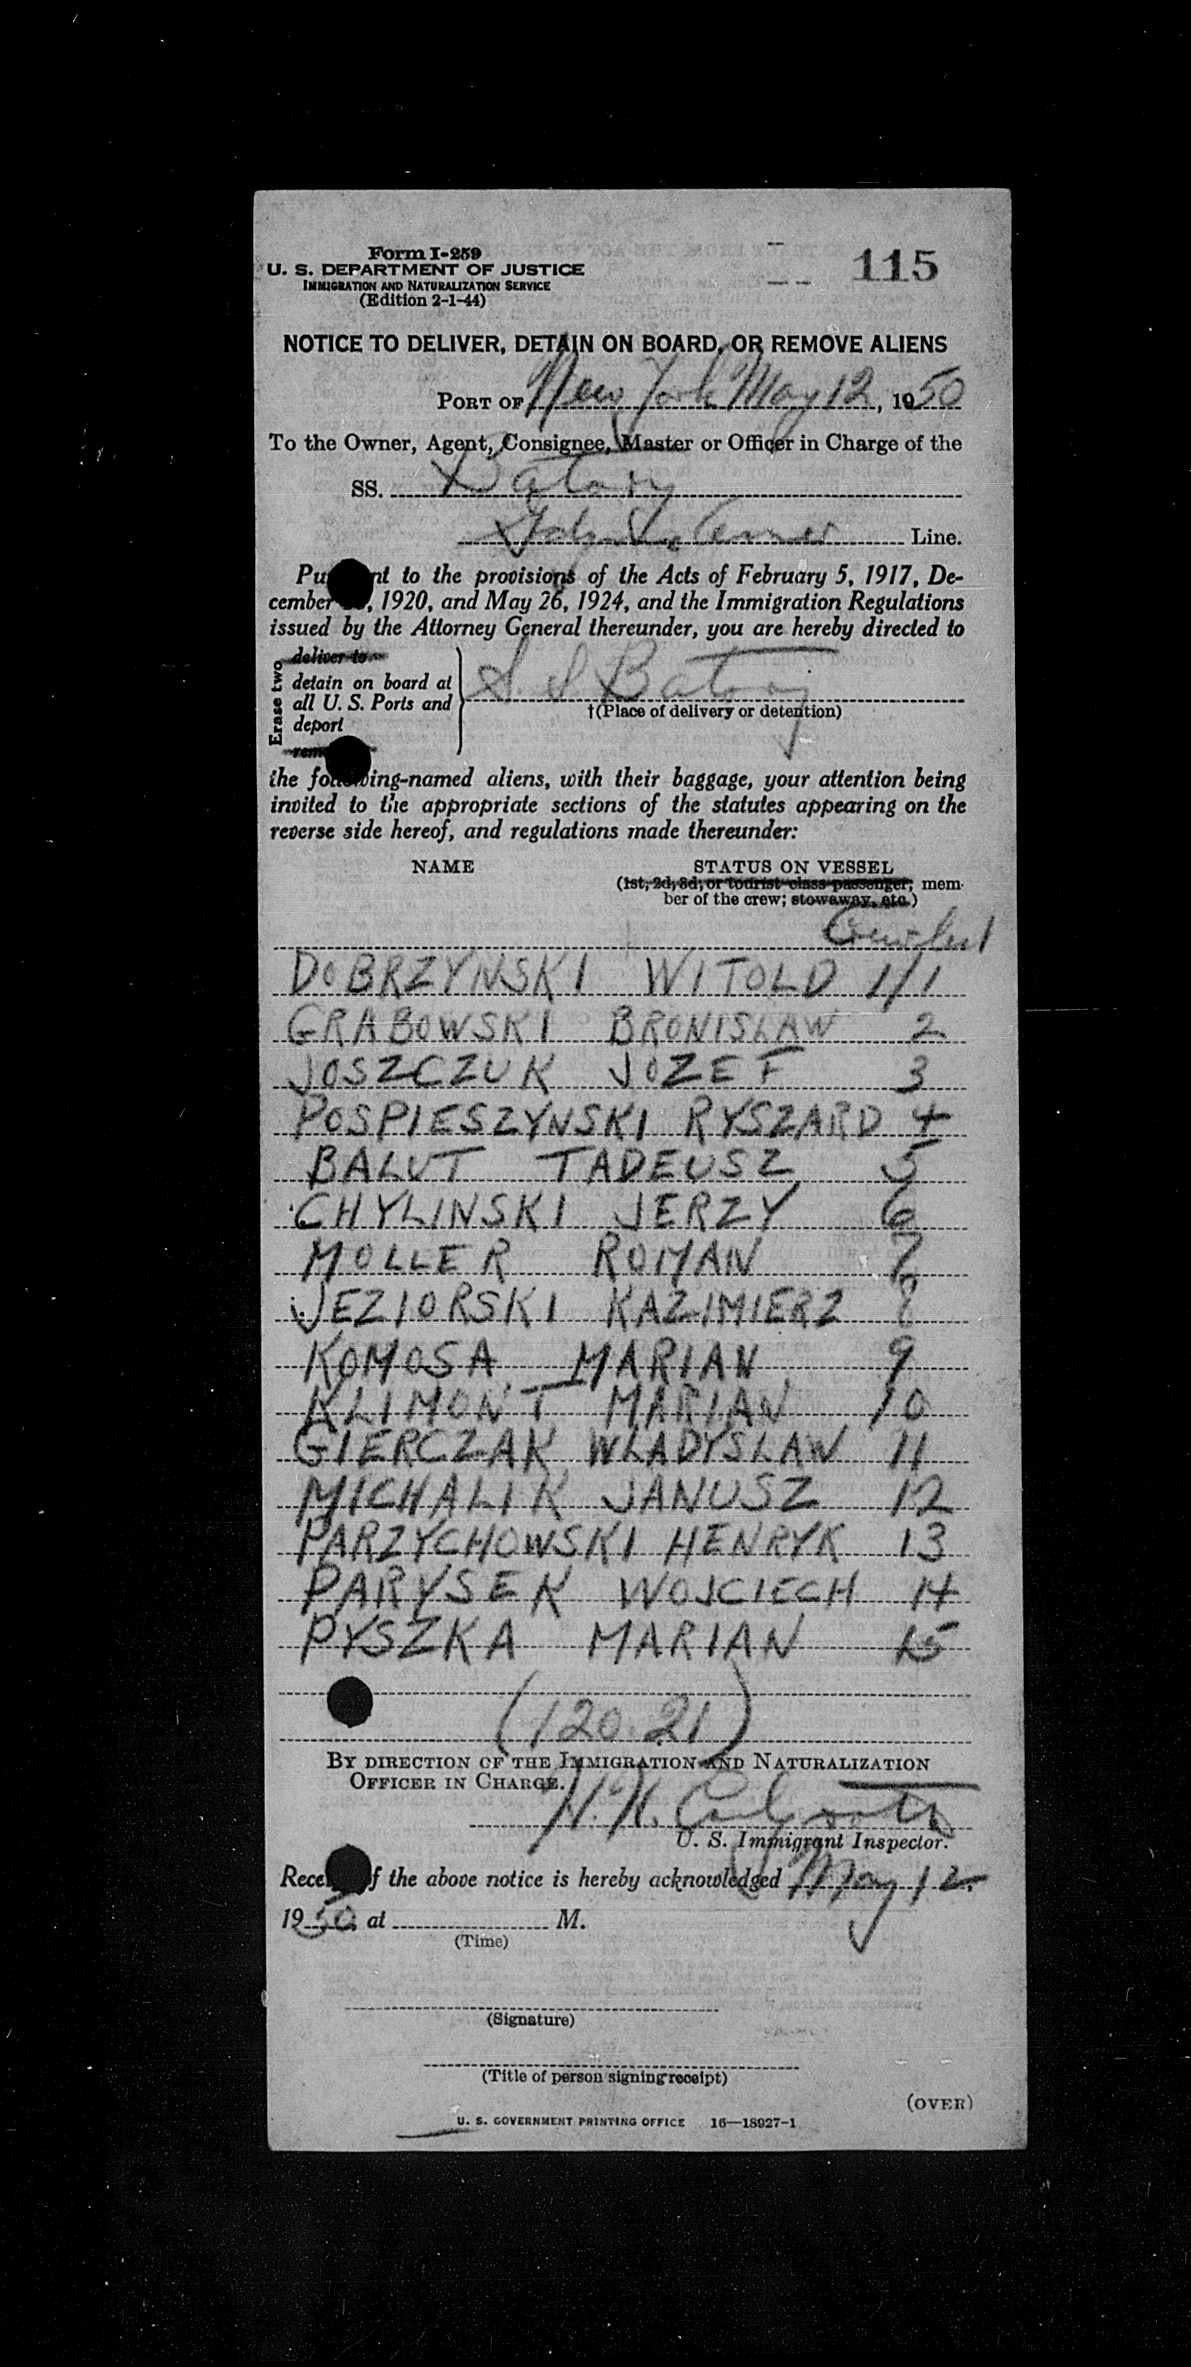 Form I-259
115
U. S. DEPARTMENT OF JUSTICE
IMMIGRATION AND NATURALIZATION SERVICE
(Edition 2-1-44)
NOTICE TO DELIVER, DETAIN ON BOARD, OR REMOVE ALIENS
PORT OF New York May 12, 1950
To the Owner, Agent, Consignee, Master or Officer in Charge of the
SS. Batory
Line.
Pu nt to the provisions of the Acts of February 5, 1917, De-
cember , 1920, and May 26, 1924, and the Immigration Regulations
issued by the Attorney General thereunder, you are hereby directed to
Erase two
deliver to
detain on board at
all U. S. Ports and
deport
rem
S. S. Batory
†(Place of delivery or detention)
the following-named aliens, with their baggage, your attention being
invited to the appropriate sections of the statutes appearing on the
reverse side hereof, and regulations made thereunder:
NAME STATUS ON VESSEL
(1st, 2d, 3d, or tourist class passenger; mem-
ber of the crew; stowaway, etc.)
Crewlist
DOBRZYNSKI WITOLD 1/1
GRABOWSKI BRONISLAW 2
JOSZCZUK JOZEF 3
POSPIESZYNSKI RYSZARD 4
BALUT TADEUSZ 5
CHYLINSKI JERZY 6
MOLLER ROMAN 7
JEZIORSKI KAZIMIERZ 8
KOMOSA MARIAN 9
KLIMONT MARIAN 10
GIERCZAK WLADYSLAW 11
MICHALIK JANUSZ 12
PARZYCHOWSKI HENRYK 13
PARYSEK WOJCIECH 14
PYSZKA MARIAN 15
(120.21)
BY DIRECTION OF THE IMMIGRATION AND NATURALIZATION
OFFICER IN CHARGE.
U. S. Immigrant Inspector.
Rece f the above notice is hereby acknowledged May 12,
1950, at M.
(Time)
(Signature)
(Title of person signing receipt)
(OVER)
U. S. GOVERNMENT PRINTING OFFICE 16—18927-1